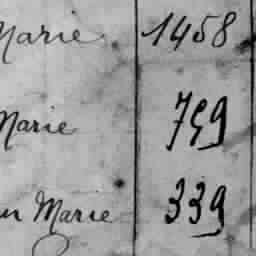 Marie 1458
Marie 759
Marie 339